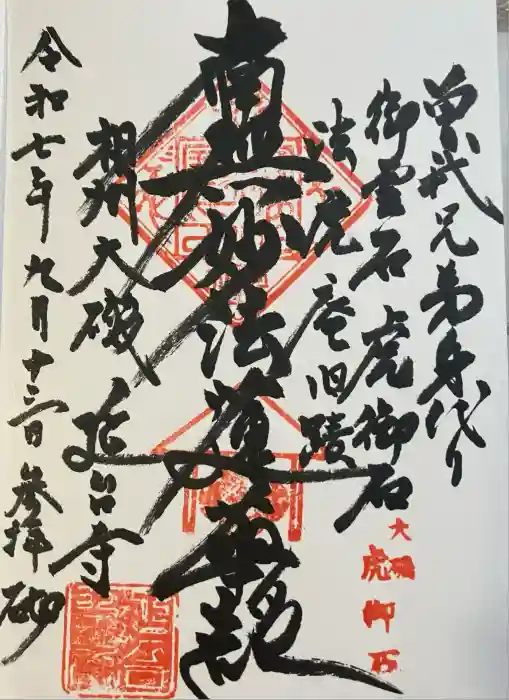 曽我兄弟身代り
御霊石 虎御石
大磯
虎御石
法虎庵旧蹟
南無妙法蓮華経
相州大磯 延台寺
令和七年九月十三日参拝